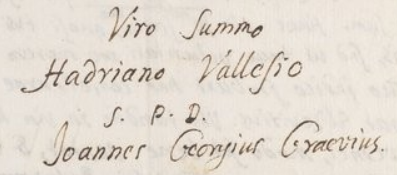 Viro Summo
Hadriano Vallesio
S. P. D.
Joannes Georgius Graevius.